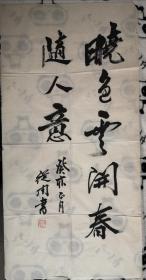 曉色雲開春
隨人意
癸亥正月
從周書